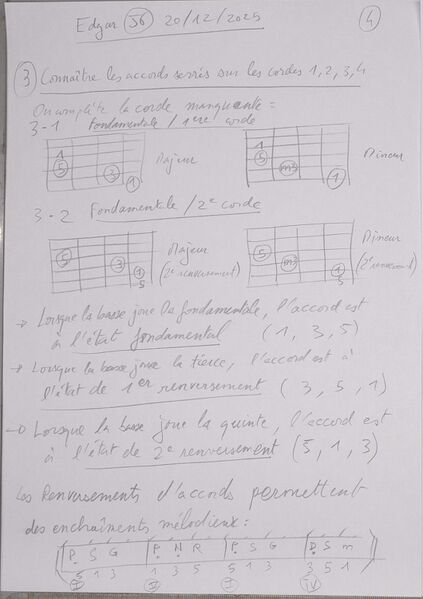 Edgar J6 20/12/2025 4
3 Connaître les accords serrés sur les cordes 1, 2, 3, 4
On complète la corde manquante =
3-1 Fondamentale / 1ere corde
1 5 3 1 Majeur
1 5 m3 1 Mineur
3-2 Fondamentale / 2e corde
5 3 1 5 Majeur (2e renversement)
5 m3 1 5 Mineur (2e renversement)
→ Lorsque la basse joue la fondamentale, l'accord est
à l'état fondamental (1, 3, 5)
→ Lorsque la basse joue la tierce, l'accord est à
l'état de 1er renversement (3, 5, 1)
→ Lorsque la basse joue la quinte, l'accord est
à l'état de 2e renversement (5, 1, 3)
Les Renversements d'accords permettent
des enchaîments mélodieux :
P S G P N R P S G D S m
5 1 3 1 3 5 5 1 3 3 5 1
I I IV